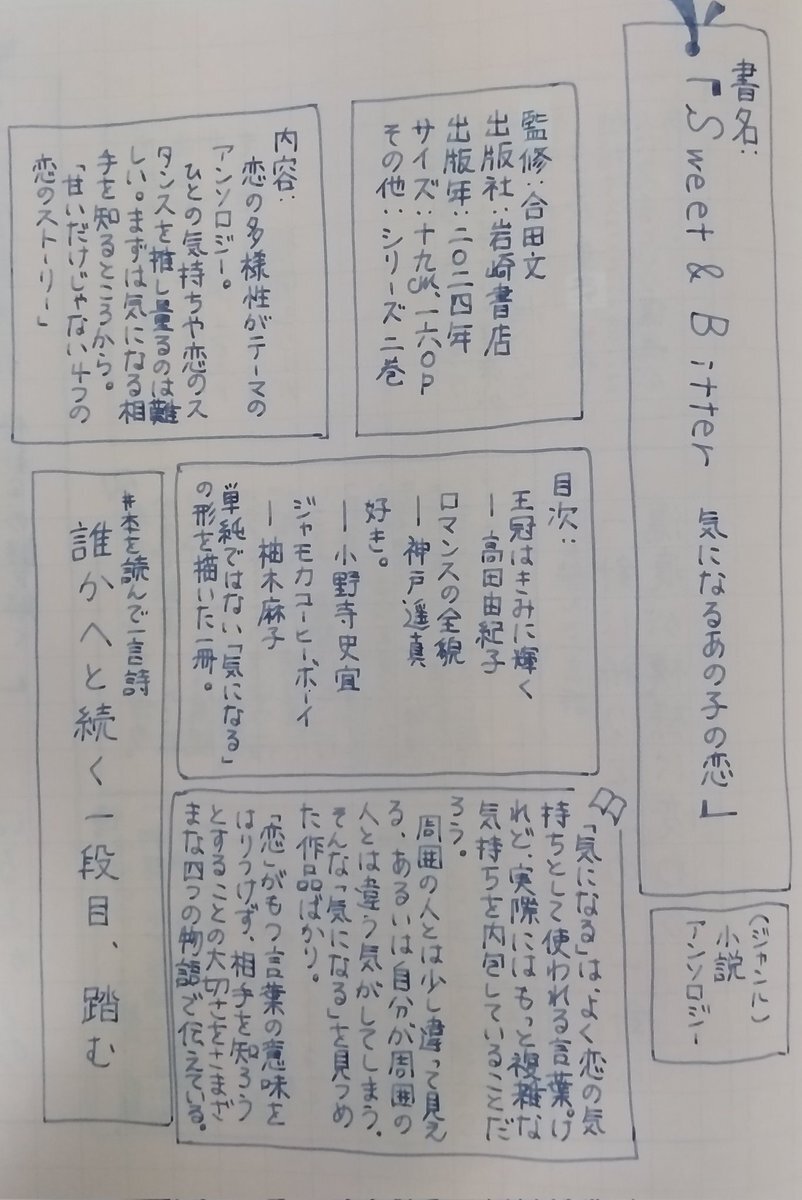 書名:
『Sweet & Bitter 気になるあの子の恋』
(ジャンル)
小説
アンソロジー
監修:合田文
出版社:岩崎書店
出版年:二〇二四年
サイズ:十九㎝、一六〇P
その他:シリーズ二巻
内容:
恋の多様性がテーマの
アンソロジー。
ひとの気持ちや恋のス
タンスを推し量るのは難
しい。まずは気になる相
手を知るところから。
「甘いだけじゃない4つの
恋のストーリー」
目次:
王冠はきみに輝く
―高田由紀子
ロマンスの全貌
―神戸遥真
好き。
―小野寺史宜
ジャモカコーヒーボーイ
―柚木麻子
単純ではない「気になる」
の形を描いた一冊。
「気になる」は、よく恋の気
持ちとして使われる言葉。け
れど、実際にはもっと複雑な
気持ちを内包していることだ
ろう。
周囲の人とは少し違って見え
る、あるいは自分が周囲の
人とは違う気がしてしまう。
そんな「気になる」を見つめ
た作品ばかり。
「恋」がもつ言葉の意味を
はりつけず、相手を知ろう
とすることの大切さをさまざ
まな四つの物語で伝えている。
#本を読んで一言詩
誰かへと続く一段目、踏む